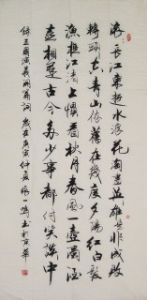 滚々長江東逝水浪花淘盡英雄是非成敗
轉頭空青山依舊在幾度夕陽紅白髮
漁樵江渚上慣看秋月春風一壺濁酒
喜相逢古今多少事都付笑談中
錄三國演義開篇詞 歲在庚寅仲夏 書於京華